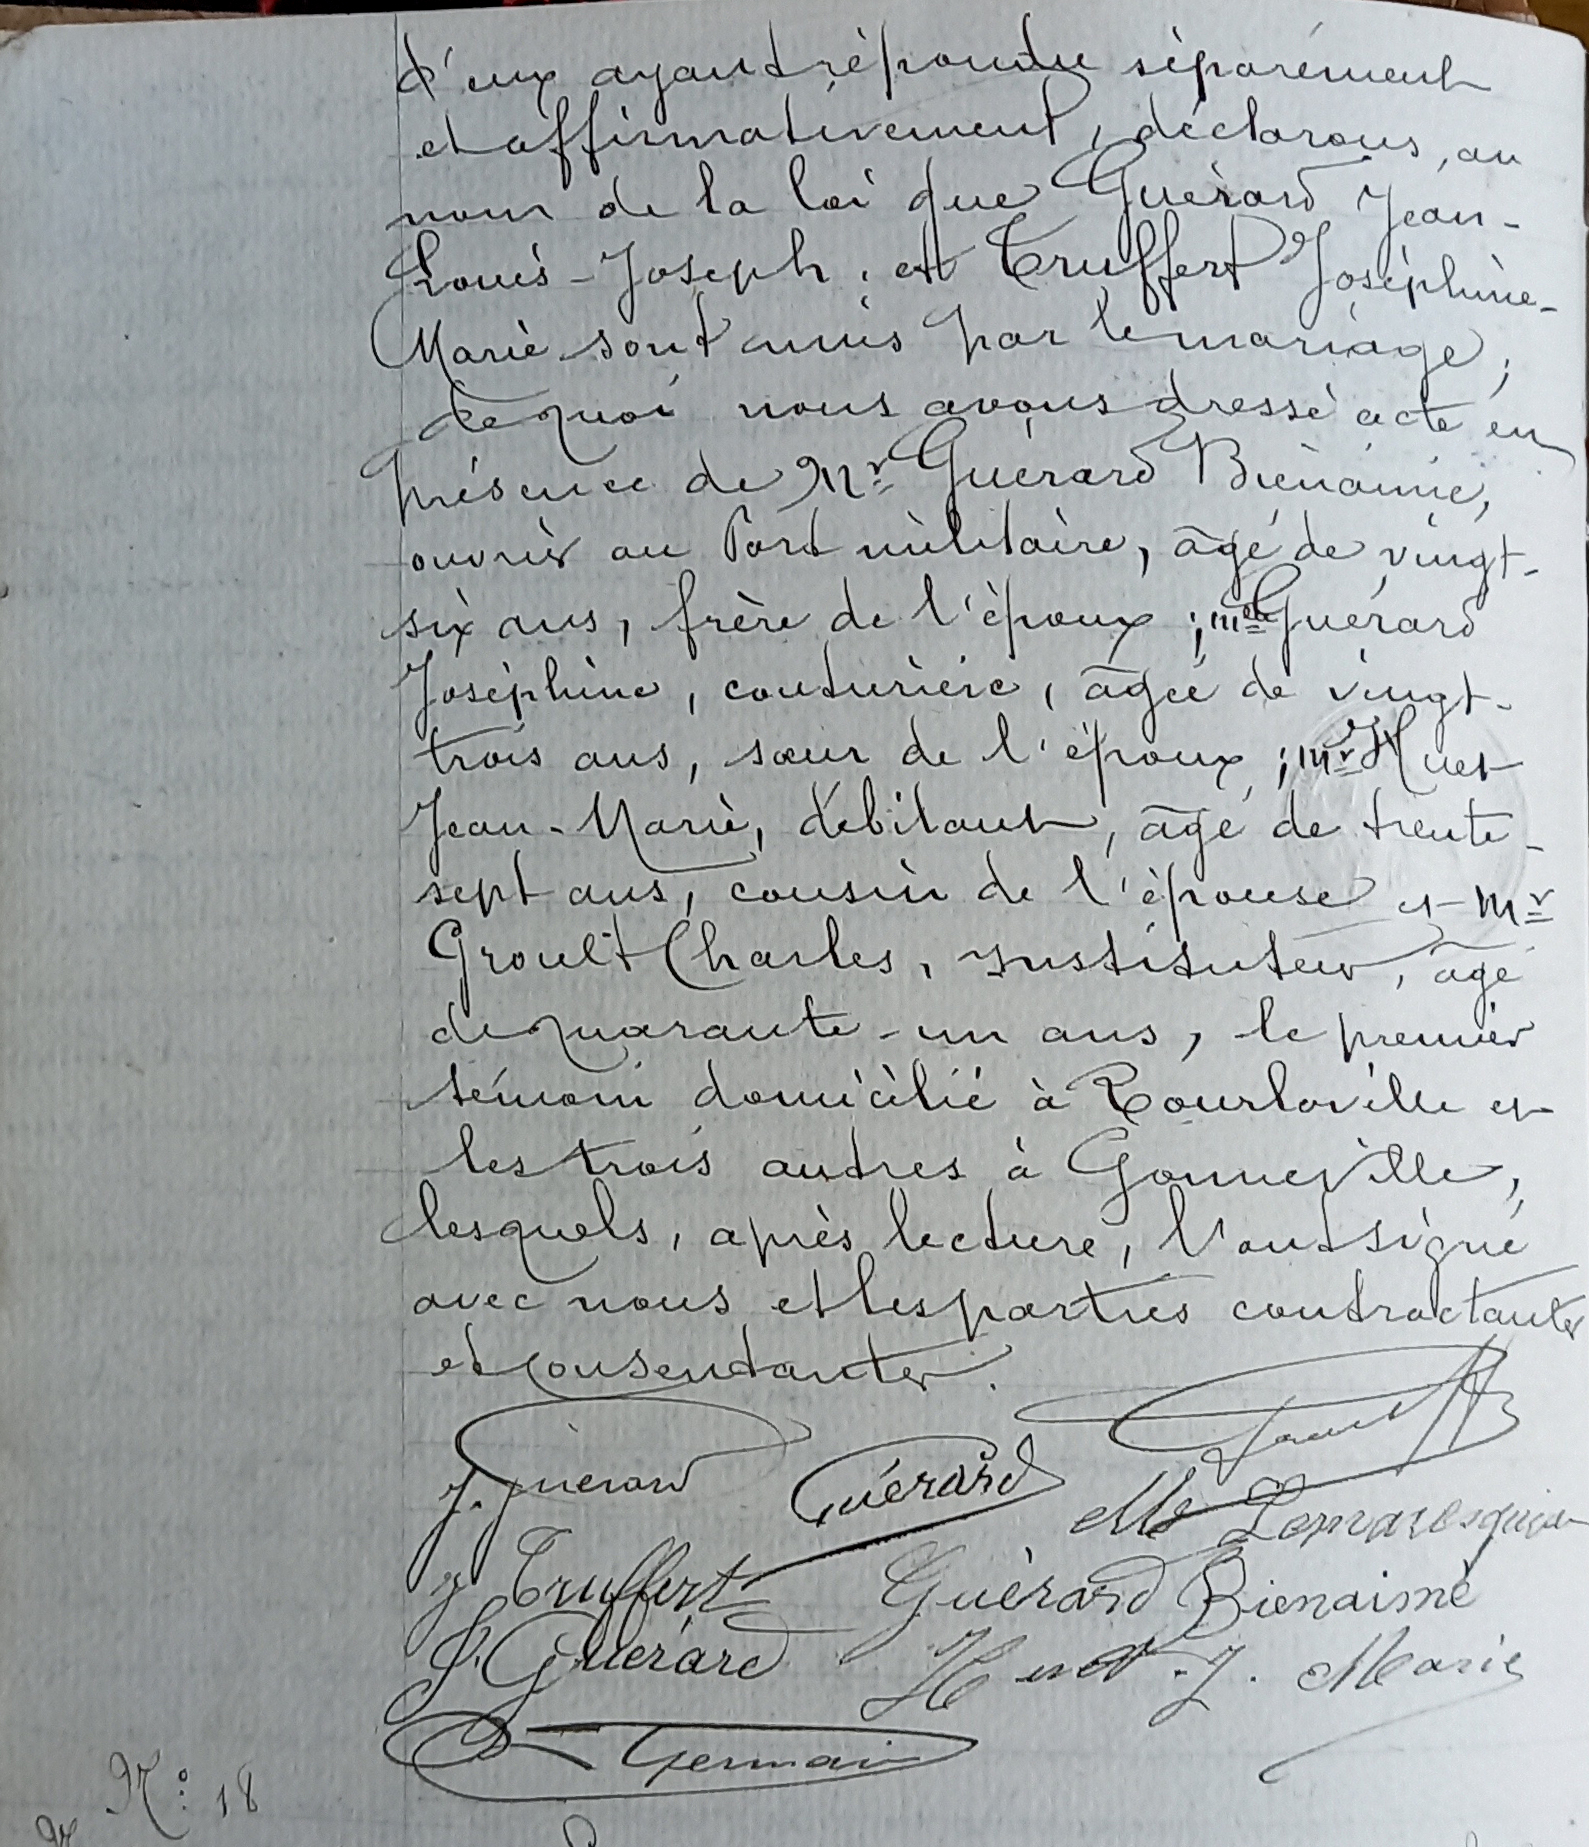 d'eux ayant répondu séparément
et affirmativement, déclarons, au
nom de la loi que Guérard Jean-
Louis-Joseph, et Truffert Joséphine-
Marie sont unis par le mariage;
de quoi nous avons dressé acte en
présence de Mr Guérard Bienaimé,
ouvrier au Port militaire, âgé de vingt-
six ans, frère de l'époux; Melle Guérard
Joséphine, couturière, âgée de vingt-
trois ans, sœur de l'époux; Mr Huet
Jean-Marie, débitant, âgé de trente-
sept ans, cousin de l'épouse et Mr
Groult Charles, Instituteur, âgé
de quarante-un ans, le premier
témoin domicilié à Tourlaville et
les trois autres à Gonneville,
lesquels, après lecture, l'ont signé
avec nous et les parties contractantes
et consentantes.
J. Guérard Guérard Lemaresquier
J Truffert Guérard Bienaimé
J. Guérard Huet. J. Marie
Germain
N° 18